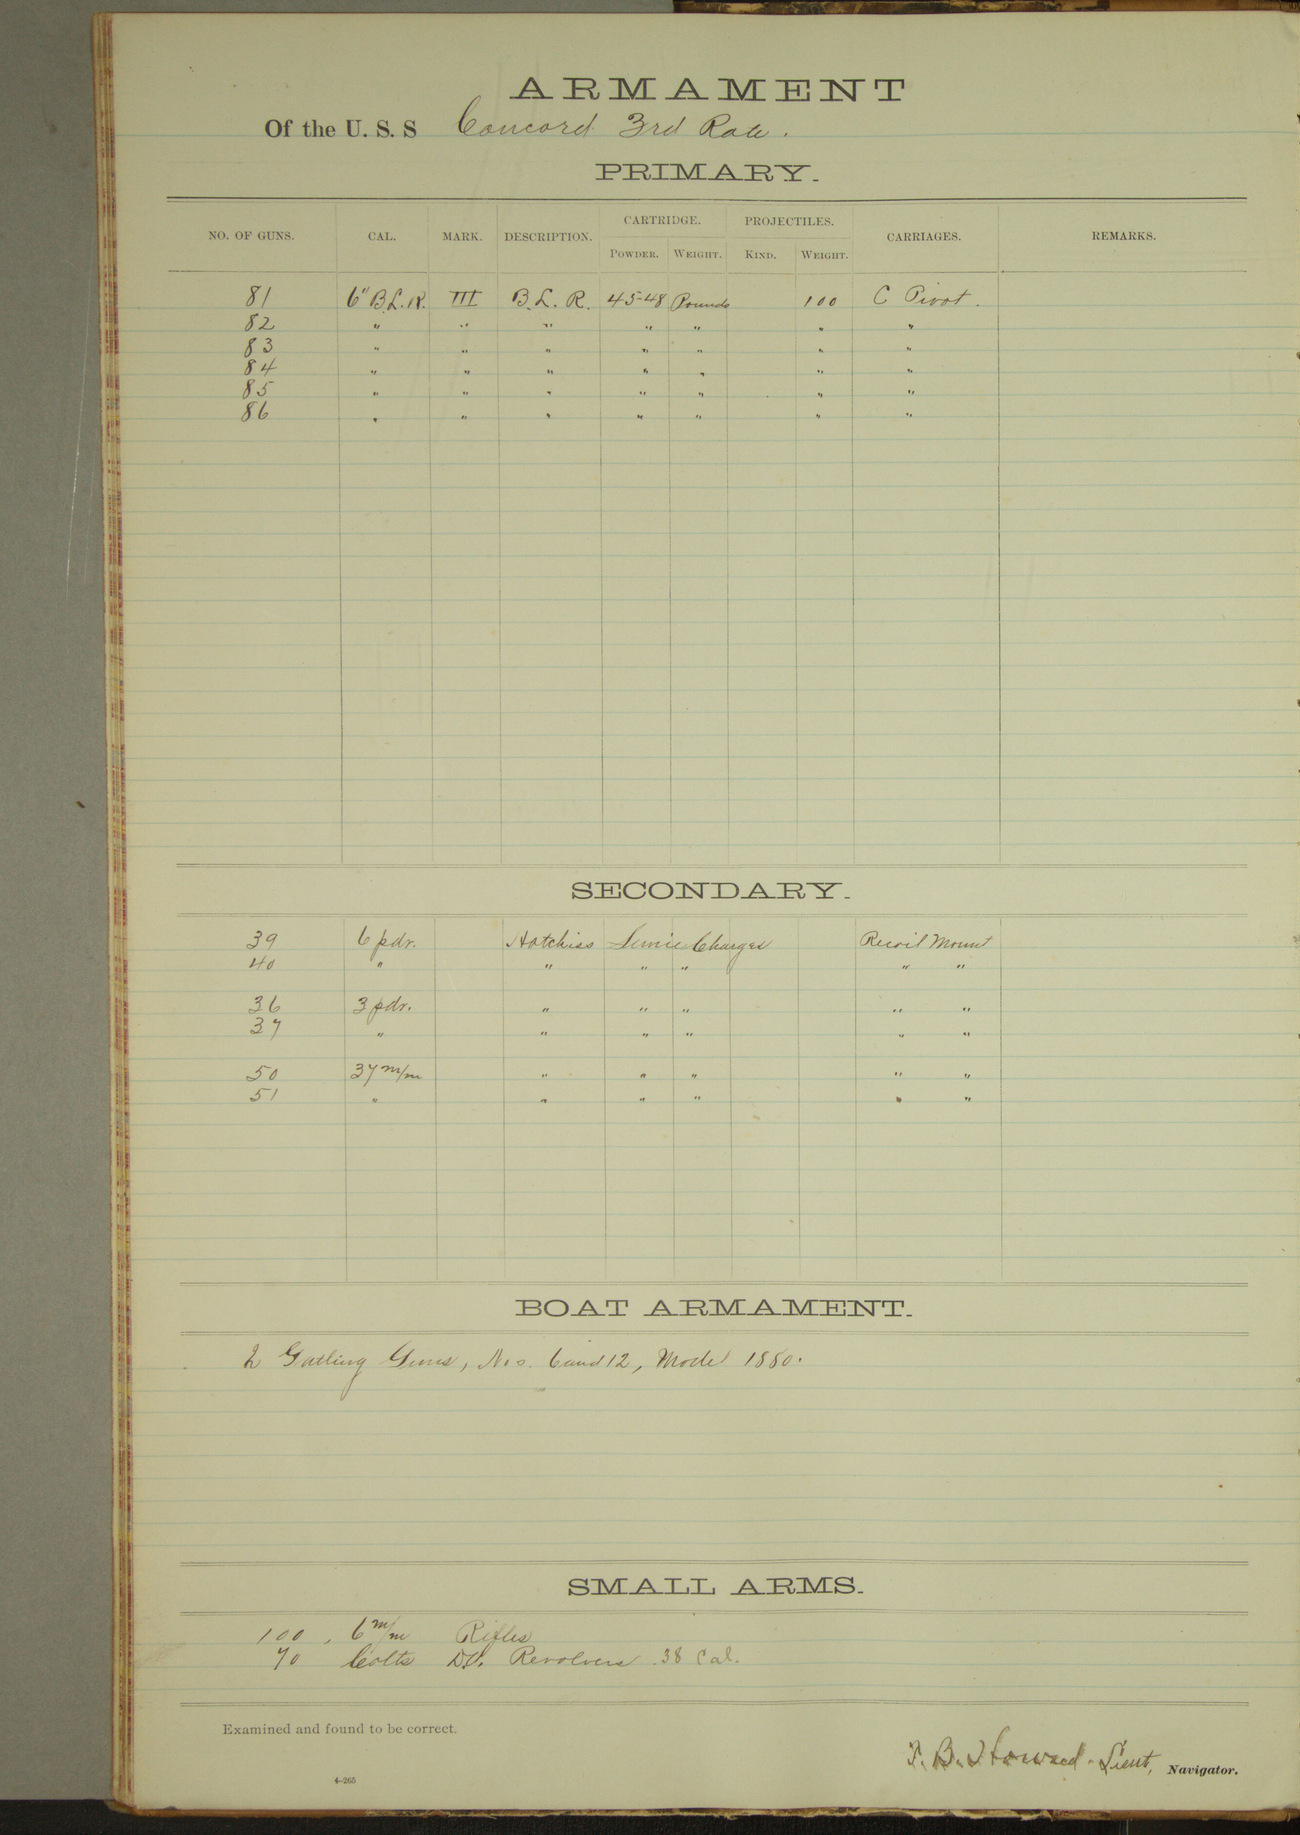 ARMAMENT
Of the U. S. S Concord 3rd Rate.
PRIMARY.
NO. OF GUNS. CAL. MARK. DESCRIPTION. CARTRIDGE. PROJECTILES. CARRIAGES. REMARKS.
POWDER. WEIGHT. KIND. WEIGHT.
81 6" B.L.R. III B.L.R. 45-48 Pounds 100 C Pivot.
82 " " " " " " "
83 " " " " " " "
84 " " " " " " "
85 " " " " " " "
86 " " " " " " "
SECONDARY.
39 6 pdr. Hotchiss Service Charges Recoil Mount
40 " " " " " "
36 3 pdr. " " " " "
37 " " " " " "
50 37 m/m " " " " "
51 " " " " " "
BOAT ARMAMENT.
2 Gatling Guns, Nos. 6 and 12, Model 1880.
SMALL ARMS.
100, 6 m/m Rifles
70 Colts D.A. Revolvers .38 Cal.
Examined and found to be correct.
T. B. Howard - Lieut, Navigator.
4-265